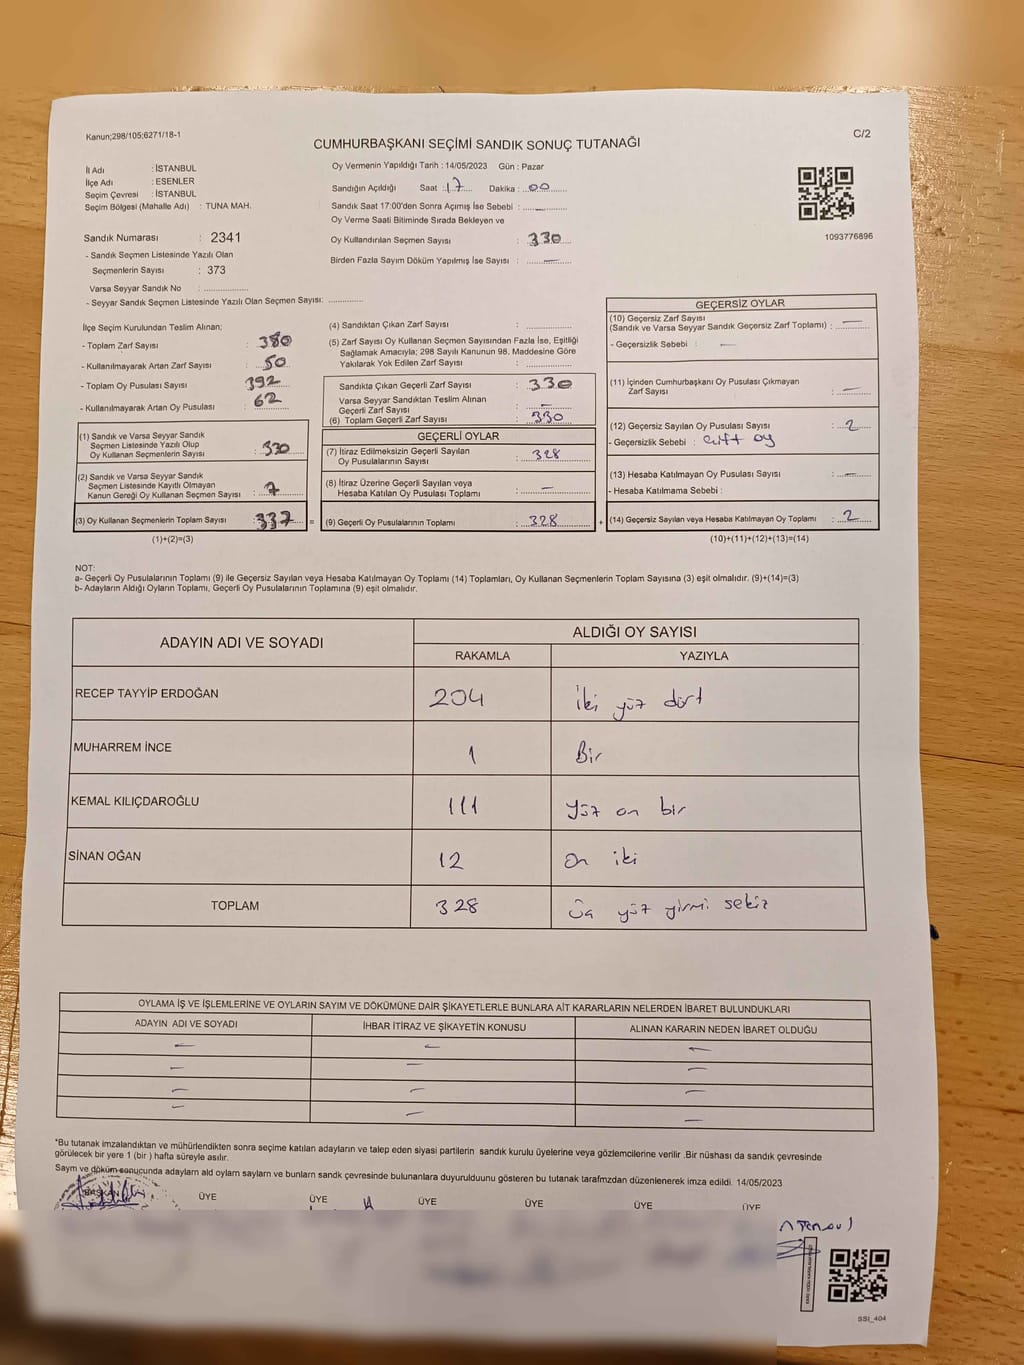 Kanun;298/105;6271/18-1
C/2
CUMHURBAŞKANI SEÇİMİ SANDIK SONUÇ TUTANAĞI
İl Adı : İSTANBUL
İlçe Adı : ESENLER
Seçim Çevresi : İSTANBUL
Seçim Bölgesi (Mahalle Adı) : TUNA MAH.
Sandık Numarası : 2341
- Sandık Seçmen Listesinde Yazılı Olan
Seçmenlerin Sayısı : 373
Varsa Seyyar Sandık No : ....................
- Seyyar Sandık Seçmen Listesinde Yazılı Olan Seçmen Sayısı: ...............
Oy Vermenin Yapıldığı Tarih : 14/05/2023 Gün : Pazar
Sandığın Açıldığı Saat : 17 Dakika : 00
Sandık Saat 17:00'den Sonra Açımış İse Sebebi : —
Oy Verme Saati Bitiminde Sırada Bekleyen ve
Oy Kullandırılan Seçmen Sayısı : 330
Birden Fazla Sayım Döküm Yapılmış İse Sayısı : —
1093776896
İlçe Seçim Kurulundan Teslim Alınan;
- Toplam Zarf Sayısı : 380
- Kullanılmayarak Artan Zarf Sayısı : 50
- Toplam Oy Pusulası Sayısı : 392
- Kullanılmayarak Artan Oy Pusulası : 62
(1) Sandık ve Varsa Seyyar Sandık
Seçmen Listesinde Yazılı Olup
Oy Kullanan Seçmenlerin Sayısı : 330
(2) Sandık ve Varsa Seyyar Sandık
Seçmen Listesinde Kayıtlı Olmayan
Kanun Gereği Oy Kullanan Seçmen Sayısı : 7
(3) Oy Kullanan Seçmenlerin Toplam Sayısı : 337 =
(1)+(2)=(3)
(4) Sandıktan Çıkan Zarf Sayısı : ....................
(5) Zarf Sayısı Oy Kullanan Seçmen Sayısından Fazla İse, Eşitliği
Sağlamak Amacıyla; 298 Sayılı Kanunun 98. Maddesine Göre
Yakılarak Yok Edilen Zarf Sayısı : ....................
Sandıkta Çıkan Geçerli Zarf Sayısı : 330
Varsa Seyyar Sandıktan Teslim Alınan
Geçerli Zarf Sayısı : —
(6) Toplam Geçerli Zarf Sayısı : 330
GEÇERLİ OYLAR
(7) İtiraz Edilmeksizin Geçerli Sayılan
Oy Pusulalarının Sayısı : 328
(8) İtiraz Üzerine Geçerli Sayılan veya
Hesaba Katılan Oy Pusulası Toplamı : —
(9) Geçerli Oy Pusulalarının Toplamı : 328 +
GEÇERSİZ OYLAR
(10) Geçersiz Zarf Sayısı
(Sandık ve Varsa Seyyar Sandık Geçersiz Zarf Toplamı) : —
- Geçersizlik Sebebi : —
(11) İçinden Cumhurbaşkanı Oy Pusulası Çıkmayan
Zarf Sayısı : —
(12) Geçersiz Sayılan Oy Pusulası Sayısı : 2
- Geçersizlik Sebebi : Çift oy
(13) Hesaba Katılmayan Oy Pusulası Sayısı : —
- Hesaba Katılmama Sebebi :
(14) Geçersiz Sayılan veya Hesaba Katılmayan Oy Toplamı : 2
(10)+(11)+(12)+(13)=(14)
NOT:
a- Geçerli Oy Pusulalarının Toplamı (9) ile Geçersiz Sayılan veya Hesaba Katılmayan Oy Toplamı (14) Toplamları, Oy Kullanan Seçmenlerin Toplam Sayısına (3) eşit olmalıdır. (9)+(14)=(3)
b- Adayların Aldığı Oyların Toplamı, Geçerli Oy Pusulalarının Toplamına (9) eşit olmalıdır.
ADAYIN ADI VE SOYADI
ALDIĞI OY SAYISI
RAKAMLA YAZIYLA
RECEP TAYYİP ERDOĞAN 204 İki yüz dört
MUHARREM İNCE 1 Bir
KEMAL KILIÇDAROĞLU 111 yüz on bir
SİNAN OĞAN 12 On iki
TOPLAM 328 yüz yirmi sekiz
OYLAMA İŞ VE İŞLEMLERİNE VE OYLARIN SAYIM VE DÖKÜMÜNE DAİR ŞİKAYETLERLE BUNLARA AİT KARARLARIN NELERDEN İBARET BULUNDUKLARI
ADAYIN ADI VE SOYADI İHBAR İTİRAZ VE ŞİKAYETİN KONUSU ALINAN KARARIN NEDEN İBARET OLDUĞU
— — —
— — —
— — —
— — —
"Bu tutanak imzalandıktan ve mühürlendikten sonra seçime katılan adayların ve talep eden siyasi partilerin sandık kurulu üyelerine veya gözlemcilerine verilir .Bir nüshası da sandık çevresinde
görülecek bir yere 1 (bir ) hafta süreyle asılır.
Sayım ve döküm sonucunda adayların ald oyların sayların ve bunların sandk çevresinde bulunanlara duyurulduunu gösteren bu tutanak tarafmzdan düzenlenerek imza edildi. 14/05/2023
BAŞKAN ÜYE ÜYE ÜYE ÜYE ÜYE ÜYE
SSI_404